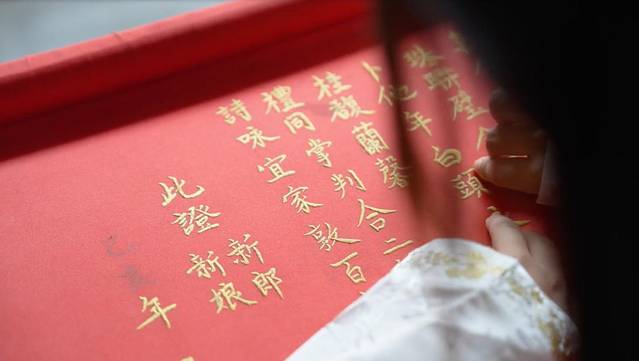 珠聯璧合
卜他年白頭
桂馥蘭馨
禮同掌判合二
詩咏宜家敦百
此證
新郎
新娘
己亥年